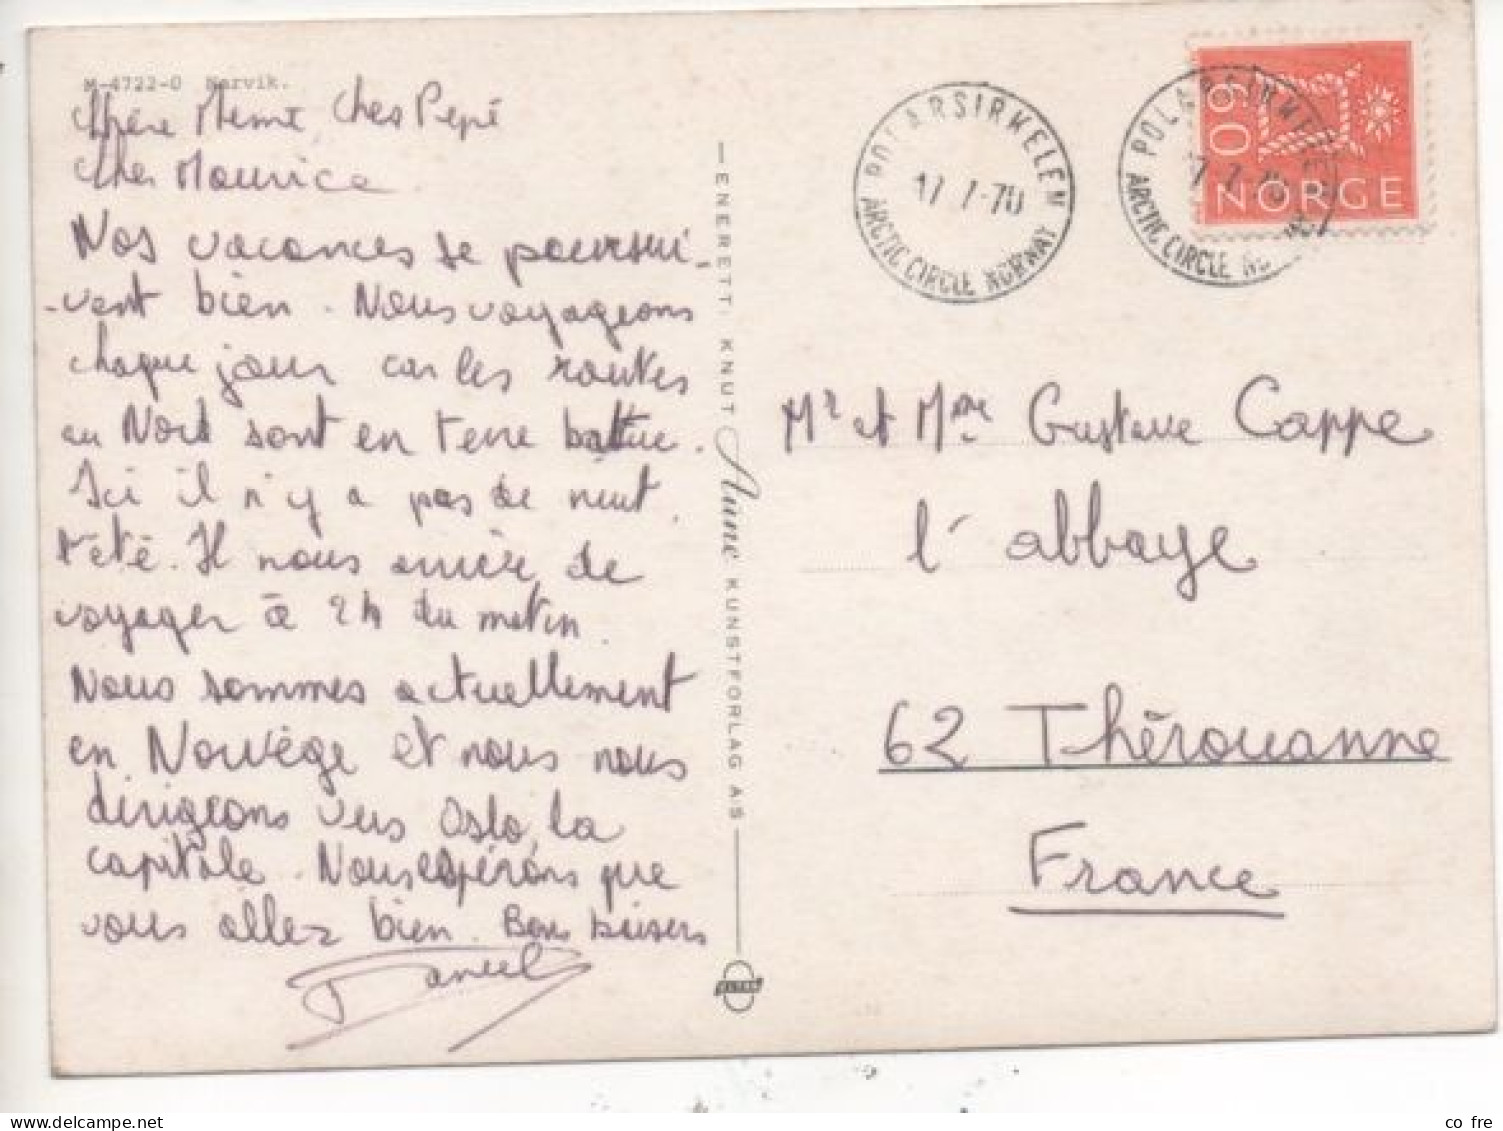 M-4722-0 Narvik.
Chère Mémé, Cher Pépé
Cher Maurice
Nos vacances se poursui-
-vent bien. Nous voyageons
chaque jour car les routes
au Nord sont en terre battue.
Ici il n'y a pas de nuit
l'été. Il nous arrive de
voyager à 2H du matin.
Nous sommes actuellement
en Norvège et nous nous
dirigeons vers Oslo, la
capitale. Nous espérons que
vous allez bien. Bons baisers
Daniel
ENERETT: KNUT Aune KUNSTFORLAG A/S
POLARSIRKELEN
17 7-70
ARCTIC CIRCLE NORWAY
POLARSIRKELEN
17 7-70
ARCTIC CIRCLE NORWAY
60
NORGE
Mr et Mme Gustave Cappe
l'abbaye
62 Thérouanne
France
co fre